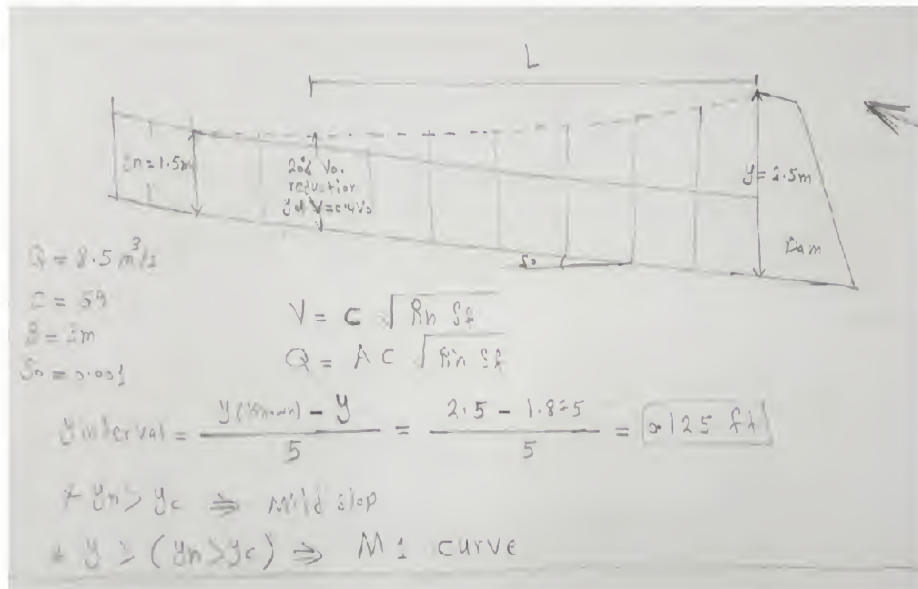 L
yn = 1.5m
20% Vo.
reduction
y at V = 0.4Vo
y = 2.5m
Dam
So
Q = 8.5 m³/s
C = 59
B = 3m
So = 0.001
V = C √Rn Sf
Q = A C √Rn Sf
y interval = y(known) - y / 5 = 2.5 - 1.875 / 5 = 0.125 ft
* yn > yc ⇒ Mild slop
* y > (yn > yc) ⇒ M1 curve